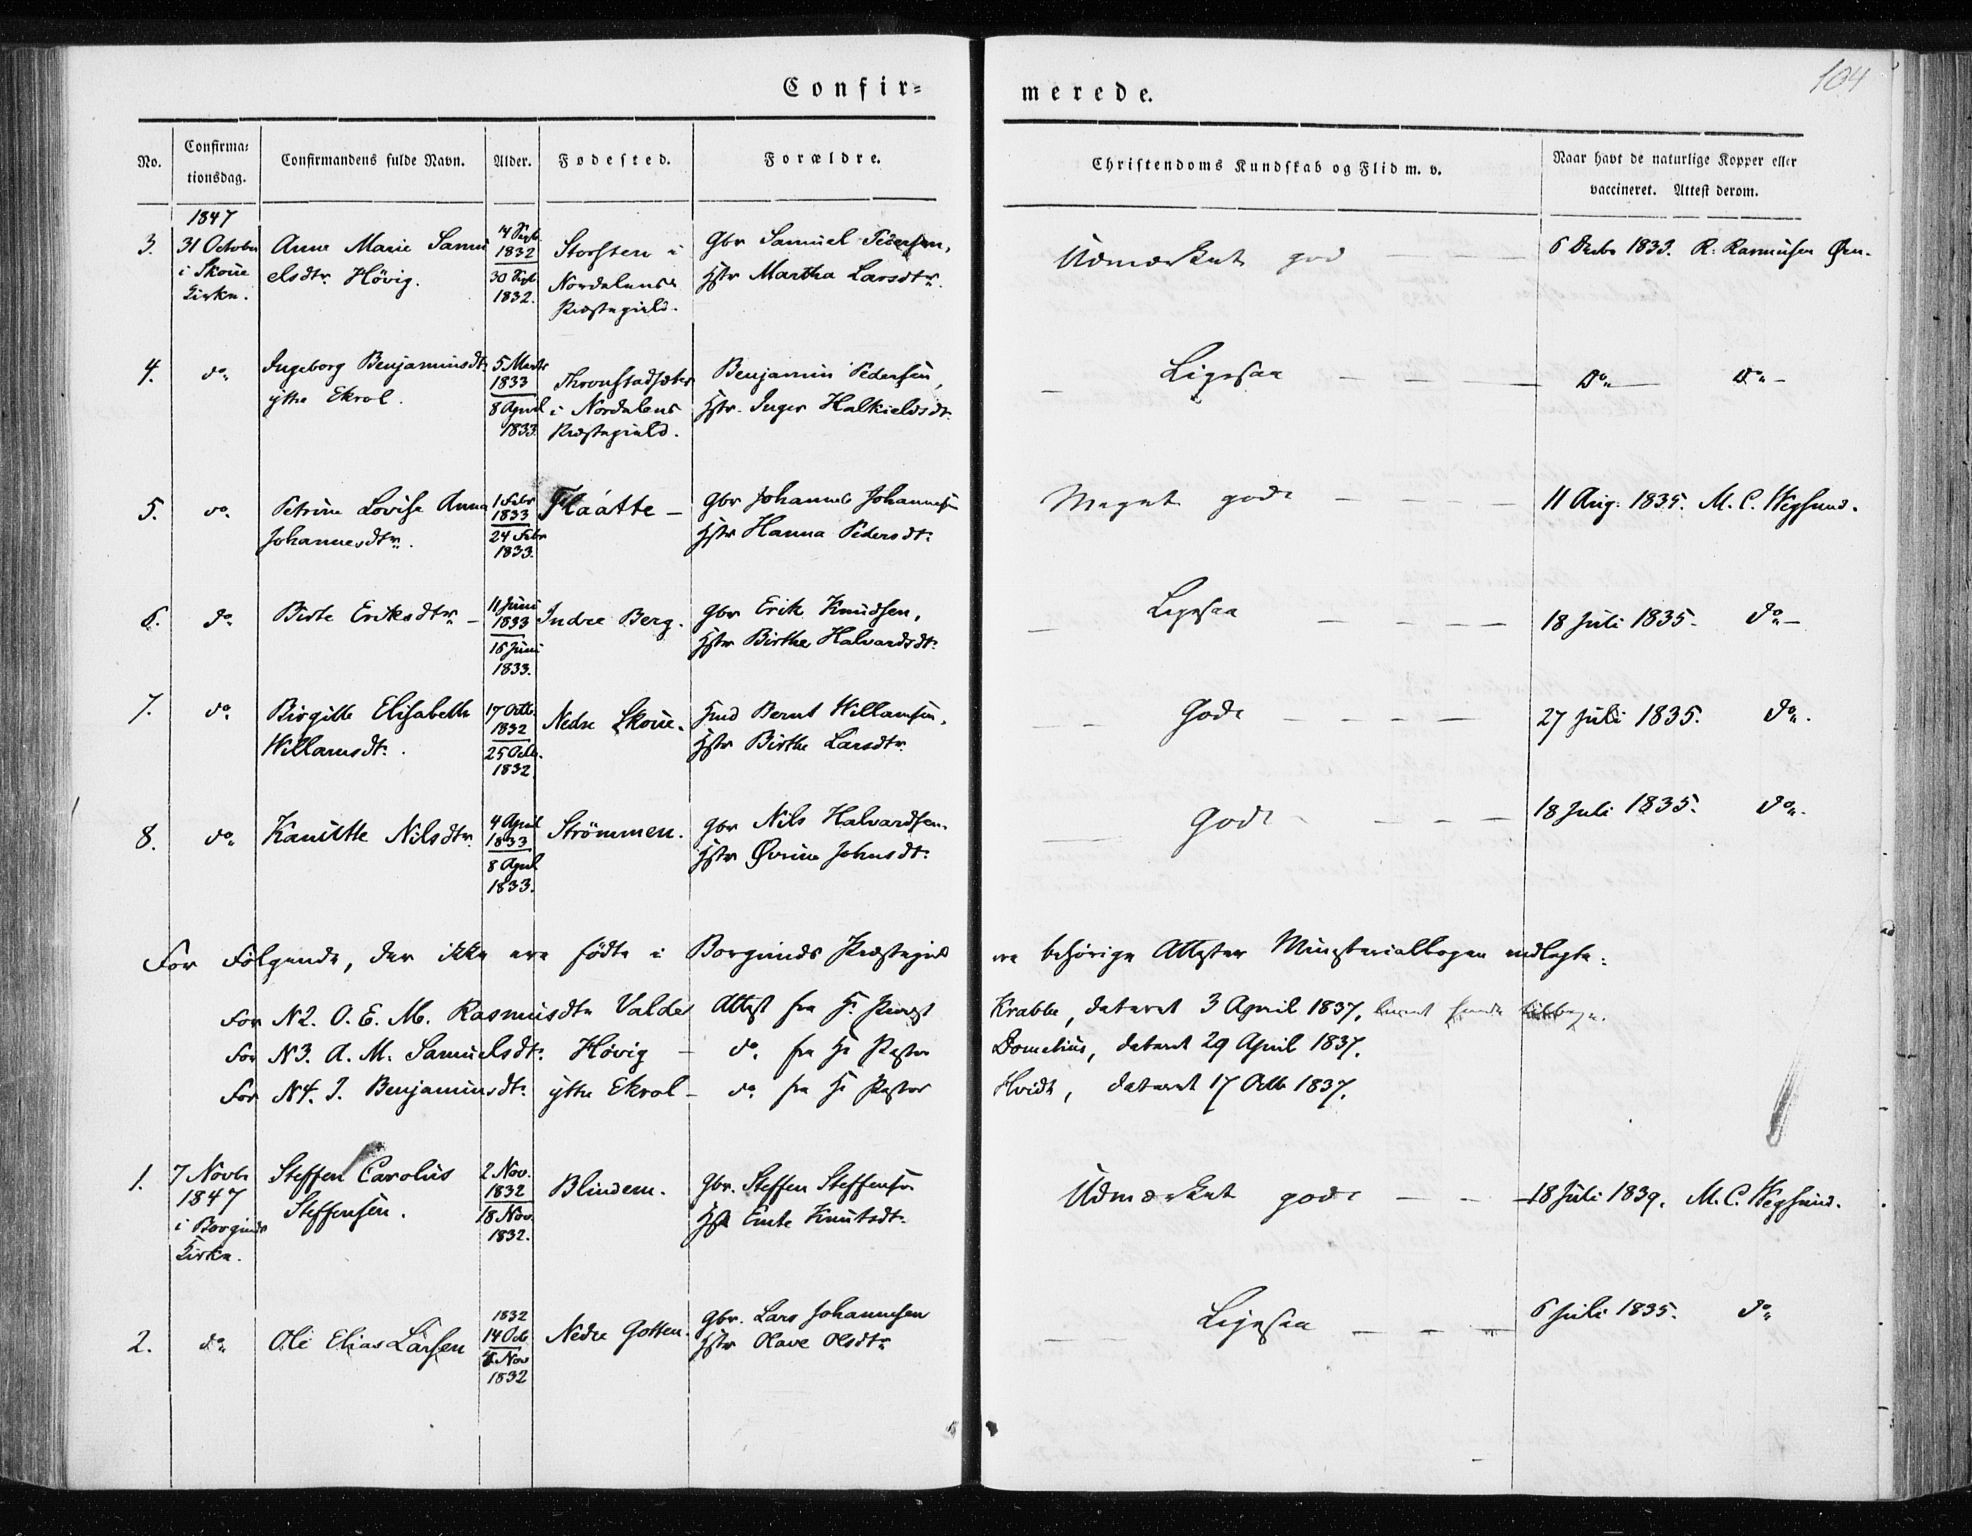 Confir=
merede.
104
No.
Confirma=
tionsdag.
Confirmandens fulde Navn.
Alder.
Fødested.
Forældre.
Christendoms Kundskab og Flid m. v.
Naar havt de naturlige Kopper eller
vaccineret. Attest derom.
1847
3. 31 October Anne Marie Samu 4 Sept. Storsten i Gbr Samuel Pedersen, Udmærket god 6 Decbr 1833. R. Rasmusen Ørn.
i Skoue elsdtr Hövig. 1832 Nordalens Hstr Martha Larsdtr.
Kirke. 30 Sept. Præstegield.
1832.
4. do Ingeborg Benjaminsdtr 5 Marts Benjamin Pedersen, Ligesaa do do
ytre Ekrol. 1833 i Nordalens Hstr. Inger Halkieldsdtr
8 April Præstegield.
1833
5. do Petrine Lovise Anna 1 Febr Flaátte Gbr Johannes Johannesen Meget gode 11 Aug: 1835. M. C. Wegsund.
Johannesdtr. 1833 Hstr Hanna Pedersdtr
24 Febr
1833.
6. do Birte Eriksdtr 11 Juni Indre Berg. Gbr Erik Knudsen, Ligesaa 18 Juli 1835. do
1833 Hstr Birthe Halvardsdtr
16 Juni
1833.
7. do Birgitte Elisabeth 17 Octb. Nedre Skoue. Hmd Bernt Willamsen, Gode 27 Juli 1835. do.
Willamsdtr. 1832 Hstr Birthe Larsdtr.
25 Octb.
1832.
8. do Kanutte Nilsdtr 4 April Strömmen. Gbr Nils Halvardsen. Gode 18 Juli 1835. do.
1833 Hstr Johnsdtr
8 April
1833.
For Følgende, der ikke ere födte i Borgunds Præstegield ere behörige Attester Ministerialbogen vedlagte:
For N 2. O. E. M. Rasmusdtr Valde Attest fra Hr. Provst Krabbe, dateret 3 April 1837,
For N 3. A. M. Samuelsdtr Hövig do fra Hr Pastor Domelius, dateret 29 April 1837.
For N 4. I. Benjaminsdtr ytre Ekrol do fra Hr Pastor Hvidt, dateret 17 Octb 1837.
1. 7 Novb Steffen Carolus 2 Nov. Blindem. Gbr. Steffen Steffensen Udmærket gode 18 Juli 1839. M. C. Wegsund.
1847 Steffensen. 1832 Hstr Knutsdtr
i Borgunds 18 Nov.
Kirke. 1832.
2. do Ole Elias Larsen 1832 Nedre Gotten. Gbr. Lars Johannesen Ligesaa 6 Juli 1835. do
14 Octb Hstr Olave Olsdtr
4 Nov
1832